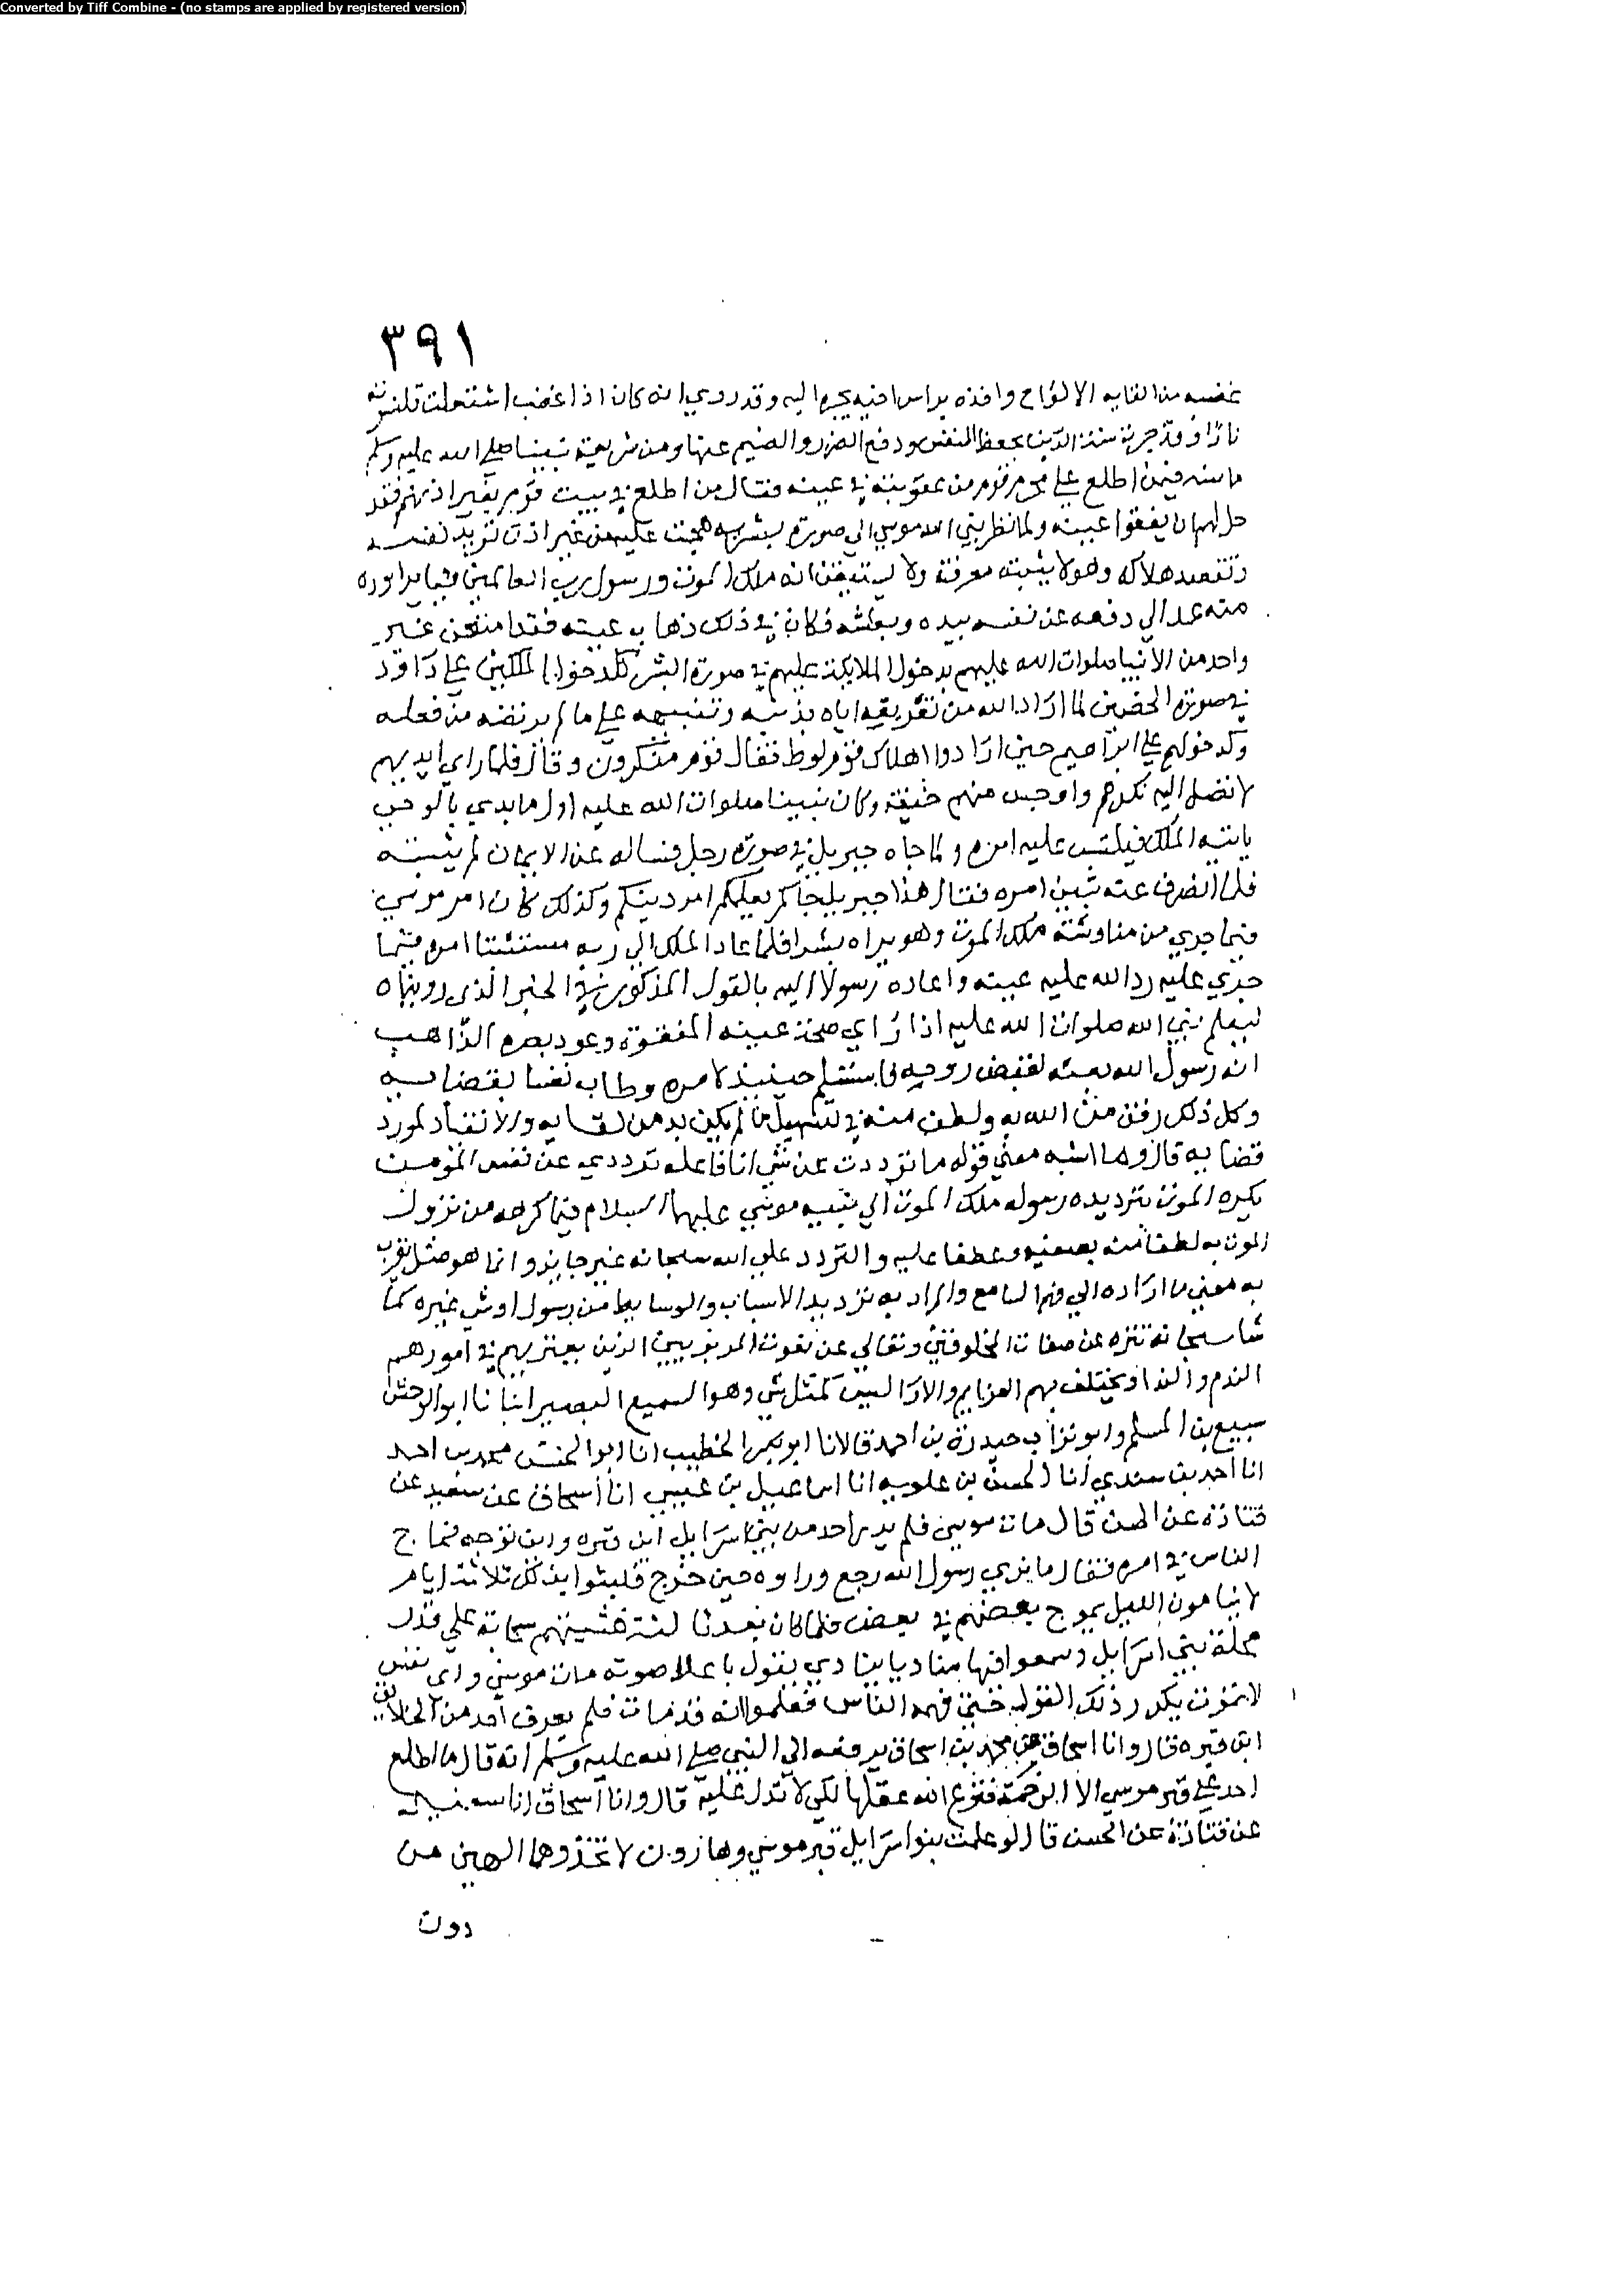 Converted by Tiff Combine - (no stamps are applied by registered version)
٣٩١
غضبه من القايه الالواح واخذه براس اخيه يجره اليه وقد روي انه كان اذا غضب اشتعلت قلنسوته
نارًا وقد جرت سنة الدين بحفظ النفس ودفع الضرر والضيم عنها ومن شريعة نبينا صلى الله عليه وسلم
ما سنه فيمن اطلع على محرم قوم من عقوبته في عينه فقال من اطلع في بيت قوم بغير اذنهم فقد
حل لهم ان يفقوا عينه ولما نظر نبي الله موسى الى صورة بشرية هجمت عليه من غير اذن تريد نفسه
وتقصد هلاكه وهو لا يثبته معرفة ولا يستيقن انه ملك الموت ورسول رب العالمين فيما يراوده
منه عمد الى دفعه عن نفسه بيده وبطشه فكان في ذلك ذهاب عينه فقد امتحن غير
واحد من الانبيا صلوات الله عليهم بدخول الملايكة عليهم في صورة البشر كدخول الملكين على داود
في صورة الخصمين لما اراد الله من تقريعه اياه بذنبه وتنبيهه على ما لم يرتضه من فعله
وكدخولهم على ابراهيم حين ارادوا اهلاك قوم لوط فقال قوم منكرون وقال فلما راى ايديهم
لا تصل اليه نكرهم واوجس منهم خيفة وكان نبينا صلوات الله عليه اول ما بدي بالوحي
ياتيه الملك فيلتبس عليه امره ولما جاه جبريل في صورة رجل فساله عن الايمان لم يثبته
فلما انصرف عنه تبين امره فقال هذا جبريل جاكم يعلمكم امر دينكم وكذلك كان امر موسى
فيما جرى من مناوشته ملك الموت وهو يراه بشرا فلما عاد الملك الى ربه مستثبتا امره فيما
جرى عليه رد الله عليه عينه واعاده رسولا اليه بالقول المذكور في الخبر الذي رويناه
ليعلم نبي الله صلوات الله عليه اذا راى صحة عينه المفقوة وعود بصره الذاهب
انه رسول الله بعثه لقبض روحه فاستسلم حينيذ لامره وطاب نفسا بقضايه
وكل ذلك رفق من الله به ولطف منه في تسهيل ما لم يكن بد من لقايه والانقياد لمورد
قضايه قال وما اشبه معنى قوله ما ترددت عن شي انا فاعله ترددي عن نفس المومن
يكره الموت بترديده رسوله ملك الموت الى نبيه موسى عليهما السلام فيما كرهه من نزول
الموت به لطفا منه بصفيه وعطفا عليه والتردد على الله سبحانه غير جايز وانما هو مثل يقرب
به معنى ما اراده الى فهم السامع والمراد به ترديد الاسباب والوسايط من رسول او شي غيره كما
شا سبحانه تنزه عن صفات المخلوقين وتعالى عن نعوت المربوبين الذين يعتريهم في امورهم
الندم والبدا ويختلف بهم العزايم والارا ليس كمثله شي وهو السميع البصير انبانا ابو الوحش
سبيع بن المسلم وابو تراب حيدرة بن احمد قالا نا ابو بكر الخطيب انا ابو الحسن محمد بن احمد
انا احمد بن سندي انا الحسن بن علويه انا اسماعيل بن عيسى انا اسحاق عن سعيد عن
قتادة عن الحسن قال مات موسى فلم يدر احد من بني اسرايل اين قبره واين توجه فماج
الناس في امره فقال ما نرى رسول الله رجع وراوه حين خرج فلبثوا بذلك ثلاثة ايام
لا ينامون الليل يموج بعضهم في بعض فلما كان بعد ثالثة غشيتهم سحابة على قدر
محلة بني اسرايل وسمعوا فيها مناديا ينادي يقول باعلا صوته مات موسى واي نفس
لا تموت يكرر ذلك القول حتى فهمه الناس فعلموا انه قد مات فلم يعرف احد من الخلايق
اين قبره قال وانا اسحاق عن محمد بن اسحاق يرفعه الى النبي صلى الله عليه وسلم انه قال ما اطلع
احد على قبر موسى الا الرخمة فنزع الله عقلها لكي لا تدل عليه قال وانا اسحاق انا سعيد
عن قتادة عن الحسن قال لو علمت بنوا اسرايل قبر موسى وهارون لاتخذوهما الهين من
دون